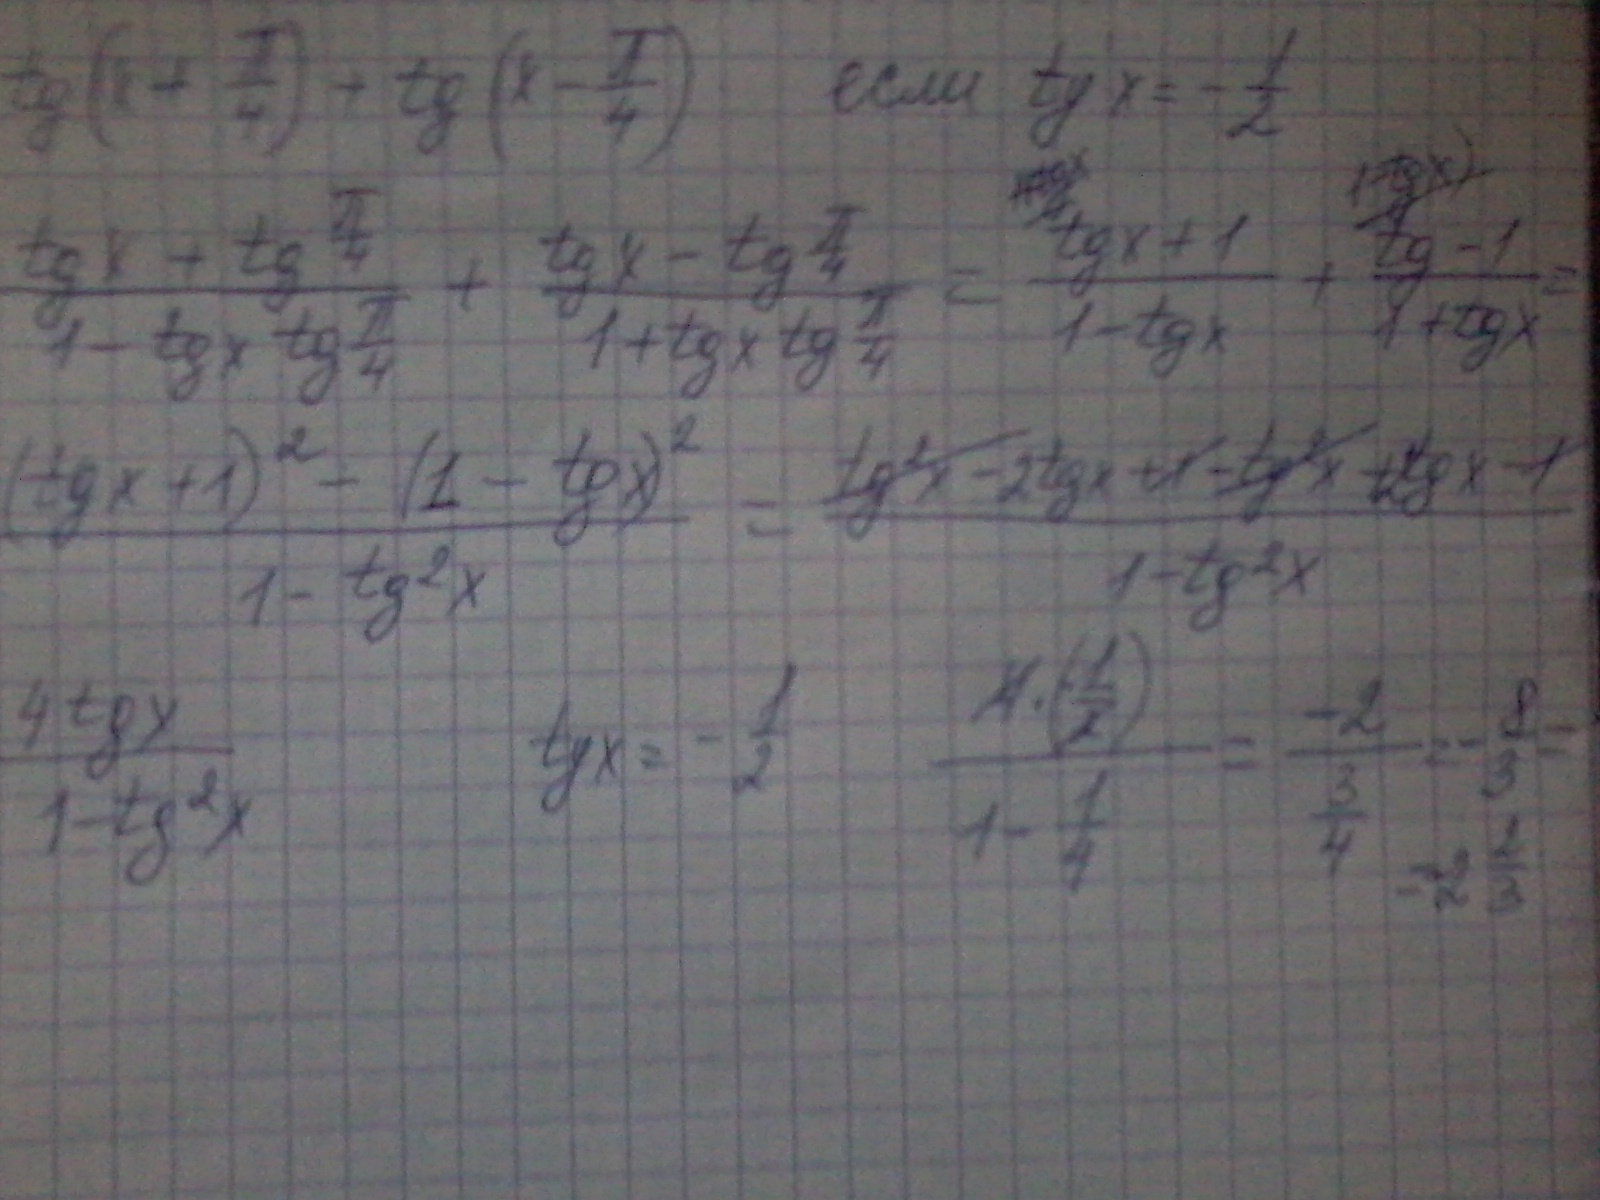 tg(x + π/4) + tg(x − π/4) если tg x = − 1/2
(tg x + tg π/4)/(1 − tg x tg π/4) + (tg x − tg π/4)/(1 + tg x tg π/4) = (tg x + 1)/(1 − tg x) + (tg − 1)/(1 + tg x) =
((tg x + 1)² − (1 − tg x)²)/(1 − tg²x) = (tg²x − 2tg x + 1 − tg²x + 2tg x − 1)/(1 − tg²x)
4 tg x/(1 − tg²x) tg x = − 1/2 4·(1/2)/(1 − 1/4) = −2/(3/4) = − 8/3 =
−2